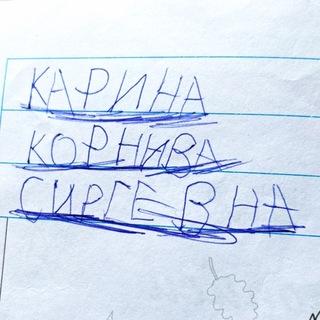 КАРИНА
КОРНИВА
СИРГЕВНА